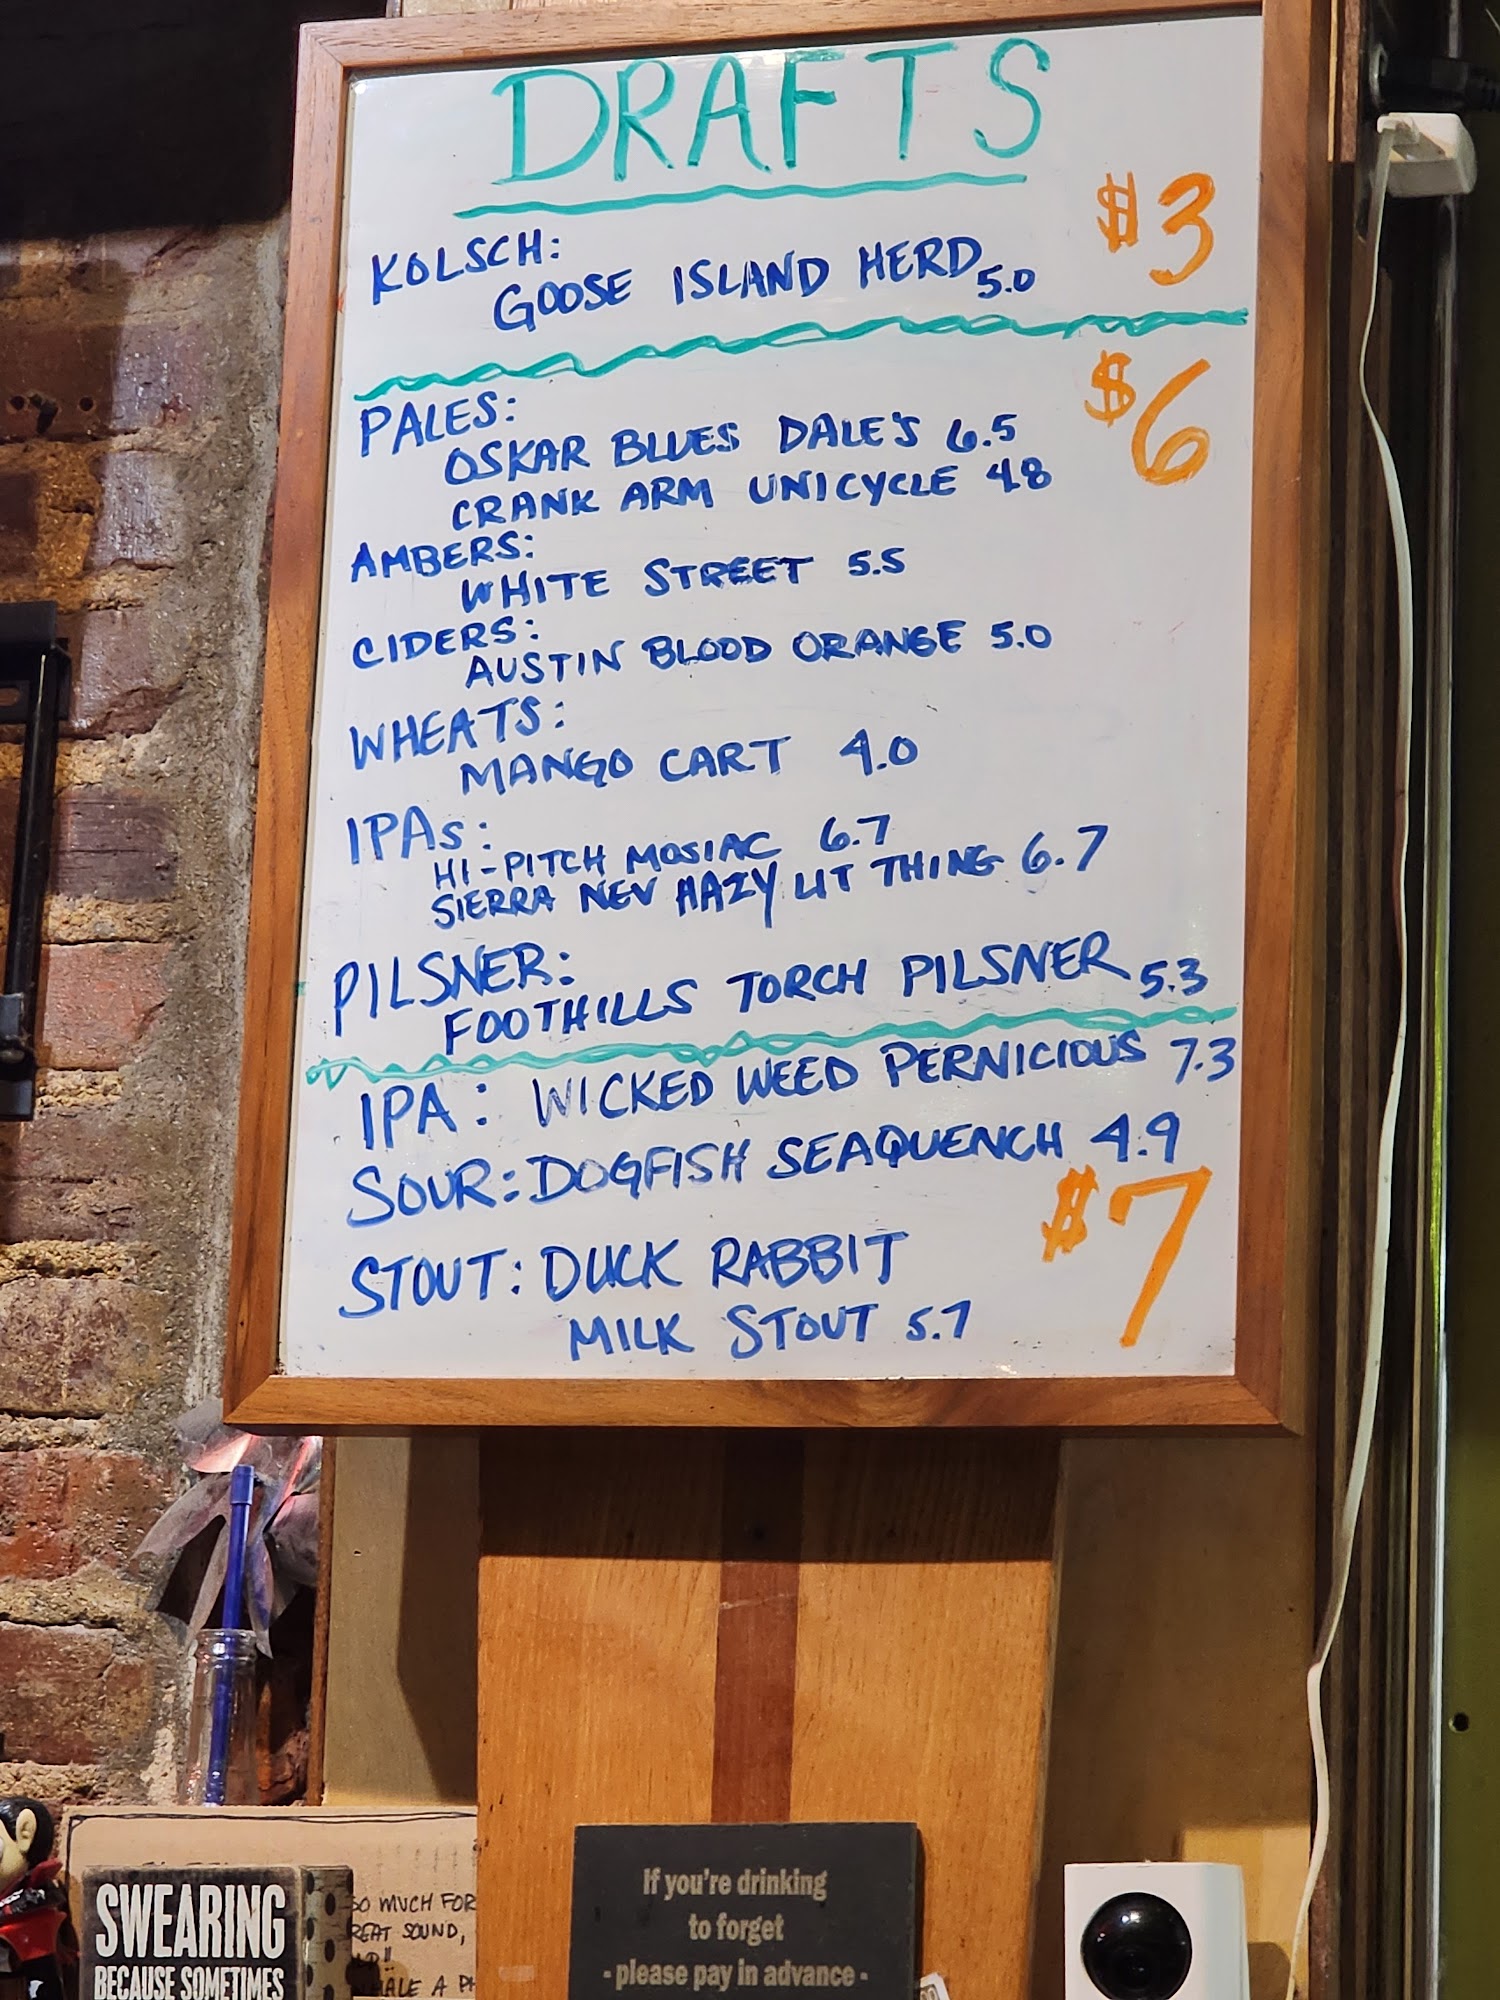 DRAFTS
$3
KOLSCH:
GOOSE ISLAND HERD 5.0
$6
PALES:
OSKAR BLUES DALE'S 6.5
CRANK ARM UNICYCLE 4.8
AMBERS:
WHITE STREET 5.5
CIDERS:
AUSTIN BLOOD ORANGE 5.0
WHEATS:
MANGO CART 4.0
IPAs:
HI-PITCH MOSIAC 6.7
SIERRA NEV HAZY LIT THING 6.7
PILSNER:
FOOTHILLS TORCH PILSNER 5.3
IPA: WICKED WEED PERNICIOUS 7.3
SOUR: DOGFISH SEAQUENCH 4.9
$7
STOUT: DUCK RABBIT
MILK STOUT 5.7
SWEARING
BECAUSE SOMETIMES
SO MUCH FOR
REAT SOUND,
If you're drinking
to forget
- please pay in advance -